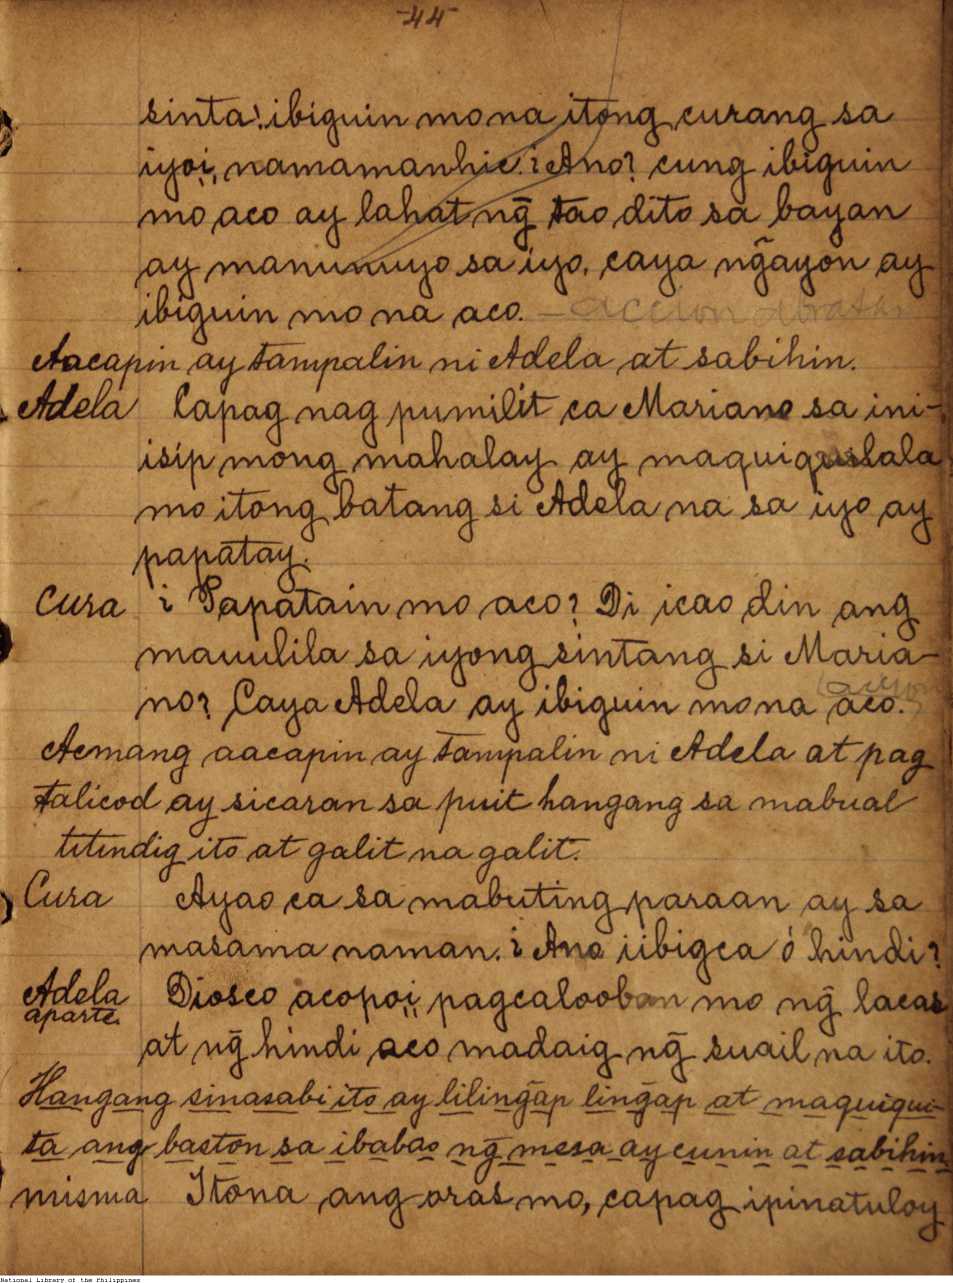 -44-
sinta? ibiguin mo na itong curang sa
iyoi, namamanhic. ¿Ano? cung ibiguin
mo aco ay lahat ng̃ tao dito sa bayan
ay manunuyo sa iyo, caya ng̃ayon ay
ibiguin mo na aco. — accion
Aacapin ay tampalin ni Adela at sabihin.
Adela Capag nag pumilit ca Mariano sa ini-
isip mong mahalay ay maquiquilala
mo itong batang si Adela na sa iyo ay
papatay.
Cura ¿Papatain mo aco? Di icao din ang
mauulila sa iyong sintang si Maria-
no? Caya Adela ay ibiguin mo na aco.
Acmang aacapin ay tampalin ni Adela at pag
talicod ay sicaran sa puit hangang sa mabual
titindig ito at galit na galit.
Cura Ayao ca sa mabuting paraan ay sa
masama naman. ¿Ano iibigca ó hindi?
Adela Diosco acopoi, pagcalooban mo ng̃ lacas
aparte.
at ng̃ hindi aco madaig ng̃ suail na ito.
Hangang sinasabi ito ay liling̃ap ling̃ap at maquiqui-
ta ang baston sa ibabao ng̃ mesa ay cunin at sabihin
misma Itona ang oras mo, capag ipinatuloy
National Library of the Philippines